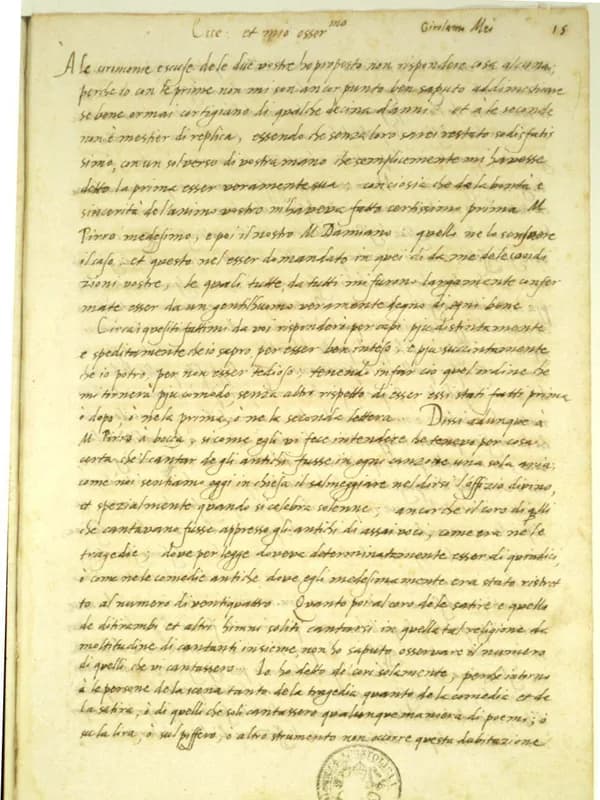 Ecc.te et mio osser.mo
Girolamo Mei
15
A le cirimonie escuse dele due vostre ho proposto non rispondere cosa alcuna;
perche io con le prime non mi son ancor punto ben saputo addimesticare
se bene ormai cortigiano di qualche decina d'anni et à le seconde
non è mestier di replica, essendo che senza loro sarei restato sodisfatis
simo, con un sol verso di vostra mano che semplicemente mi havesse
detto la prima esser veramente sua; conciosia che de la bontà e
sincerità del'animo vostro m'haveva fatto certissimo prima M.
Pirro medesimo, e poi il nostro M. Damiano: quello ne lo
il caso, et questo nel esser domandato in quei dì da me dele condi
zioni vostre, le quali tutte da tutti mi furono largamente confer
mate esser da un gentilhuomo veramente degno di ogni bene
Circa i quesiti fattimi da voi risponderò per capi più distintamente
e speditamente che io saprò, per esser ben inteso; e più succintamente
che io potrò, per non esser tedioso; tenendo in far ciò quel'ordine che
mi tornerà più comodo senza altro rispetto di esser essi stati fatti prima
ò dopo, ò ne la prima, ò ne la seconda lettera. Dissi adunque à
M. Pirro à bocca, si come egli vi fece intendere che tenevo per cosa
certa che'l cantar degli antichi fusse in ogni canzone una sola aria,
come noi sentiamo oggi in chiesa il salmeggiare nel dirsi l'offizio divino,
et spezialmente quando si celebra solenne; ancor che il coro di quelli
che cantavano fusse appresso gli antichi di assai voci, come era ne le
tragedie; dove per legge doveva determinatamente esser di quindici,
ò come nele comedie antiche dove egli medesimamente era stato ristret
to al numero di ventiquattro. Quanto poi al coro dele satire e quello
de ditirambi et altri hinni soliti cantarsi in quella tal religione da
moltitudine di cantanti insieme, non ho saputo osservare il numero
di quelli che vi cantassero. Io ho detto di cori solamente, perche intorno
à le persone de la scena tanto de la tragedia quanto de la comedia et de
la satira, ò di quelli che soli cantassero qualunque maniera di poemi; ò
su la lira, ò sul piffero, ò altro strumento non occorre questa dubitazione